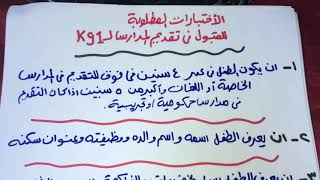 الأختبارات المطلوبة
للقبول فى تقديم المدارس لـ Kg1
1- ان يكون الطفل فى عمر ٤ سنين فى فوق للتقديم فى المدارس
الخاصة أو اللغات وأكبر من ٥ سنين اذا كان التقديم
فى مدارس حكومية او تجريبية.
2- ان يعرف الطفل اسمه واسم والده ووظيفته وعنوان سكنه
3- ان يعرف الطفل